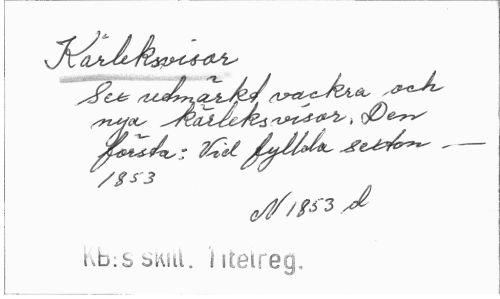 Kärleksvisor
Sex utmärkt vackra och
nya kärleksvisor. Den
första: Vid fyllda sexton —
1853
N 1853 d
KB:s skill. Titelreg.